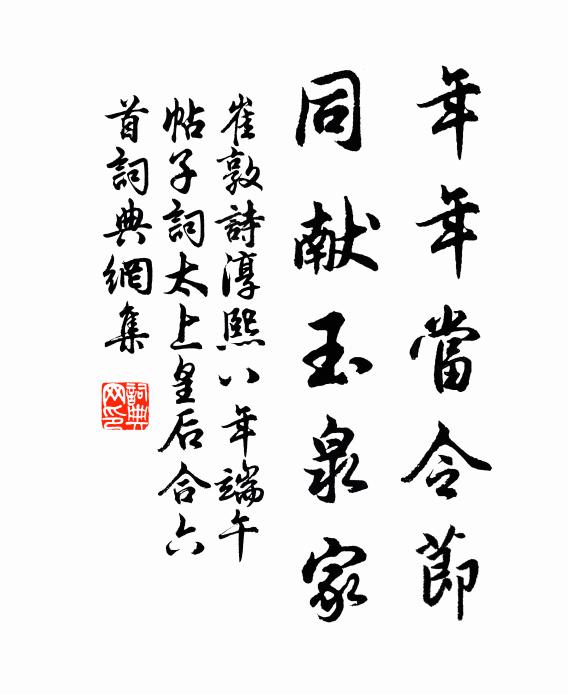 年年當令節
同献玉泉家
崔敦詩淳熙八年端午
帖子詞太上皇后合六
首詞典網集
詞典網印